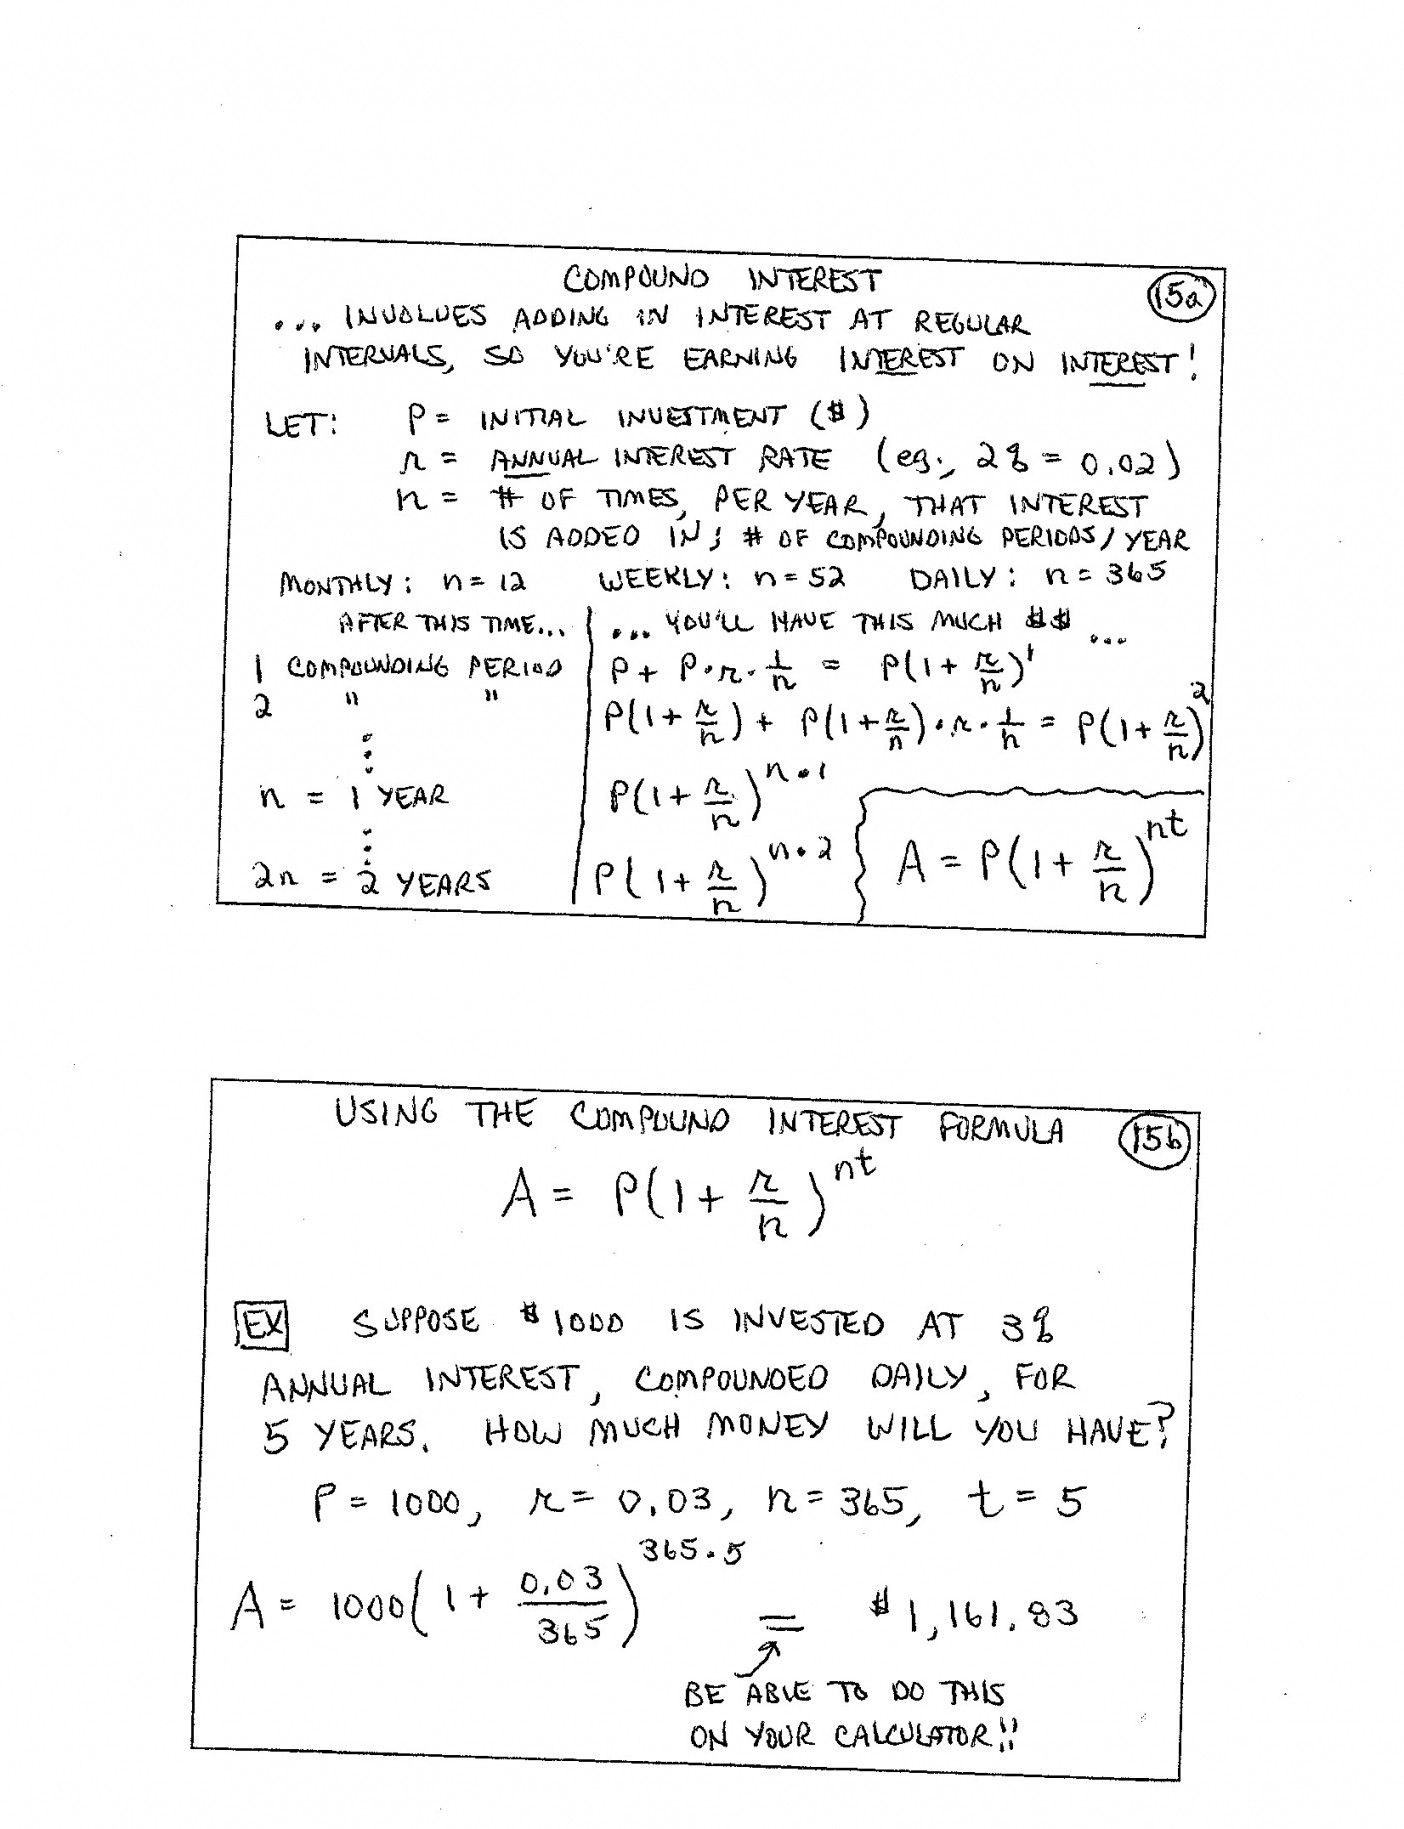 COMPOUND INTEREST
15a
... INVOLVES ADDING IN INTEREST AT REGULAR
INTERVALS, SO YOU'RE EARNING INTEREST ON INTEREST!
LET: P = INITIAL INVESTMENT ($)
r = ANNUAL INTEREST RATE (eg., 2% = 0.02)
n = # OF TIMES, PER YEAR, THAT INTEREST
IS ADDED IN; # OF COMPOUNDING PERIODS/YEAR
MONTHLY: n = 12 WEEKLY: n = 52 DAILY: n = 365
AFTER THIS TIME... ... YOU'LL HAVE THIS MUCH $$ ...
1 COMPOUNDING PERIOD P + P·r·1/n = P(1 + r/n)^1
2 " " P(1 + r/n) + P(1 + r/n)·r·1/n = P(1 + r/n)^2
n = 1 YEAR P(1 + r/n)^n·1
2n = 2 YEARS P(1 + r/n)^n·2
A = P(1 + r/n)^nt
USING THE COMPOUND INTEREST FORMULA
15b
A = P(1 + r/n)^nt
EX SUPPOSE $1000 IS INVESTED AT 3%
ANNUAL INTEREST, COMPOUNDED DAILY, FOR
5 YEARS. HOW MUCH MONEY WILL YOU HAVE?
P = 1000, r = 0.03, n = 365, t = 5
A = 1000(1 + 0.03/365)^365·5 = $1,161.83
BE ABLE TO DO THIS
ON YOUR CALCULATOR!!